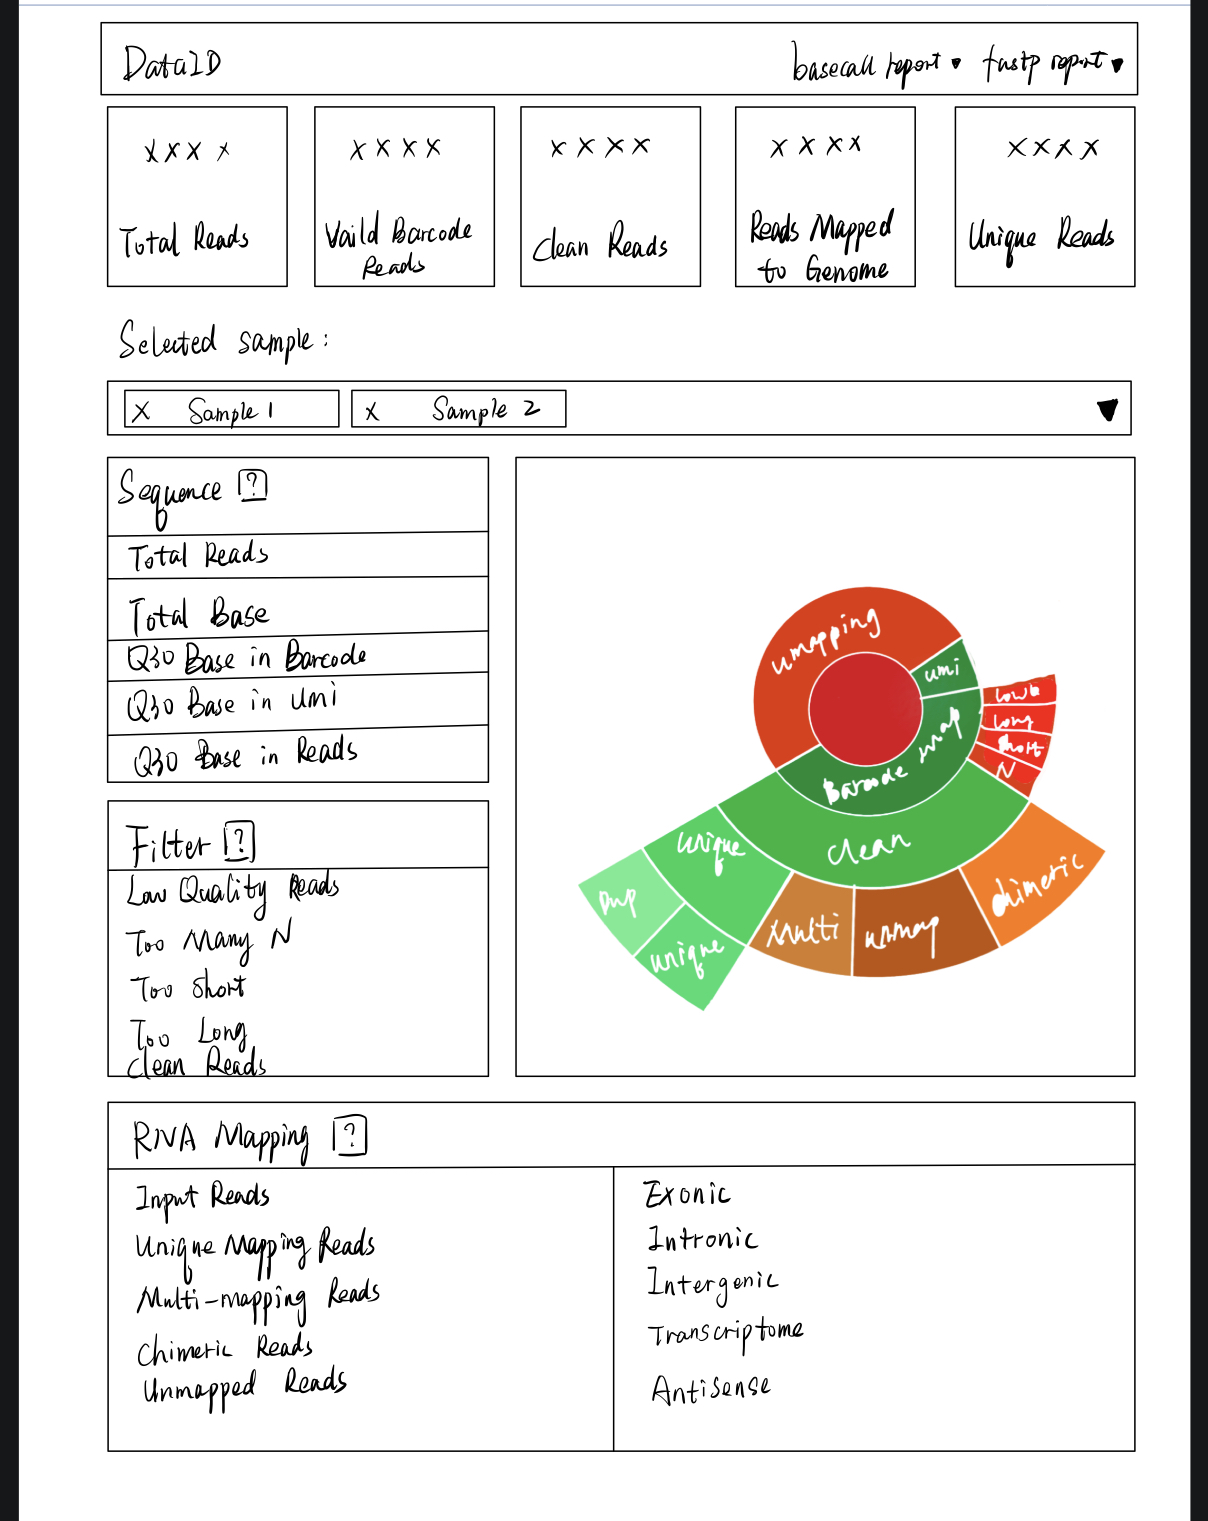 DataID
basecall report ▼ fastp report ▼
xxxx
Total Reads
xxxx
Vaild Barcode
Reads
xxxx
Clean Reads
xxxx
Reads Mapped
to Genome
xxxx
Unique Reads
Selected sample:
X Sample 1
X Sample 2
▼
Sequence ?
Total Reads
Total Base
Q30 Base in Barcode
Q30 Base in Umi
Q30 Base in Reads
Filter ?
Low Quality Reads
Too Many N
Too Short
Too Long
Clean Reads
umapping
umi
Barcode map
Long
short
N
clean
unique
Dup
unique
Multi
unmap
chimeric
RNA Mapping ?
Input Reads
Unique Mapping Reads
Multi-mapping Reads
Chimeric Reads
Unmapped Reads
Exonic
Intronic
Intergenic
Transcriptome
Antisense